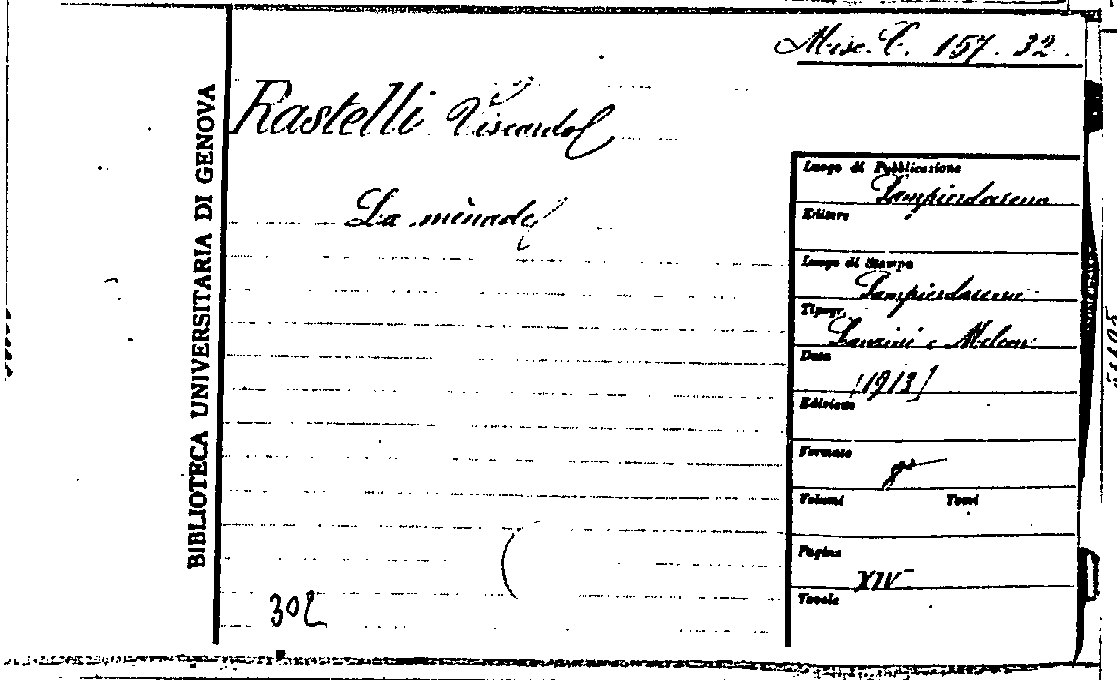 Misc. C. 157. 32.
BIBLIOTECA UNIVERSITARIA DI GENOVA
Rastelli Viscardo
La mènade
Luogo di Pubblicazione
Sampierdarena
Editore
Luogo di Stampa
Sampierdarena
Tipogr.
e
Data
[1913]
Edizione
Formato
8°
Volumi Tomi
Pagine
XIV
Tavole
302